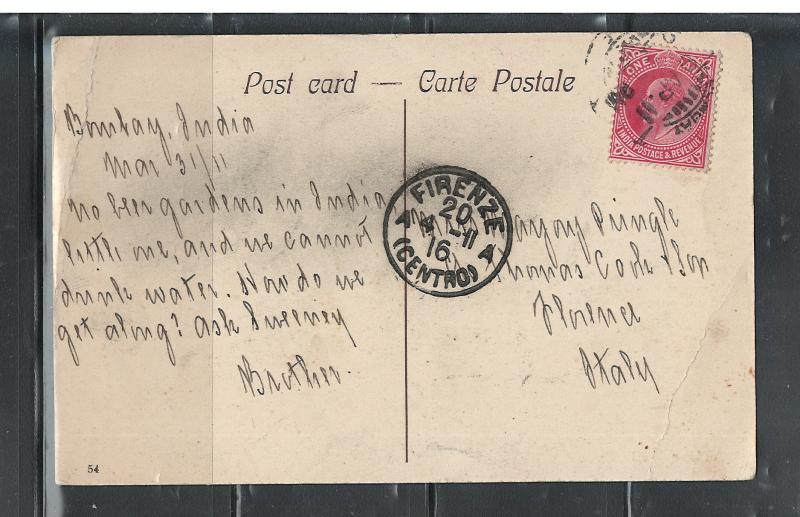 Post card — Carte Postale
Bombay, India
Mar 31/11
No beer gardens in India
little one, and we cannot
drink water. How do we
get along? Ask Sweeney
Brother
Pringle
Thomas Cook & Son
Florence
Italy
FIRENZE
20
4-11
16
(CENTRO)
A A
ONE ANNA
INDIA POSTAGE & REVENUE
54